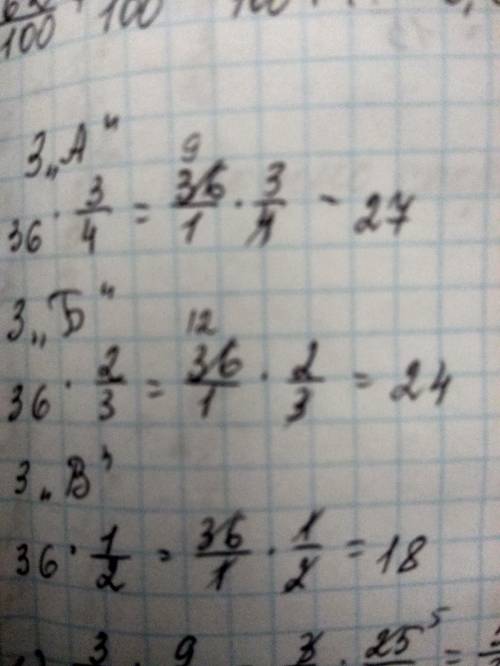 100 100 100
3 „А"
36 · 3/4 = 36/1 · 3/4 = 27
9
3 „Б"
36 · 2/3 = 36/1 · 2/3 = 24
12
3 „В"
36 · 1/2 = 36/1 · 1/2 = 18
3 · 9 3 · 25 5 =